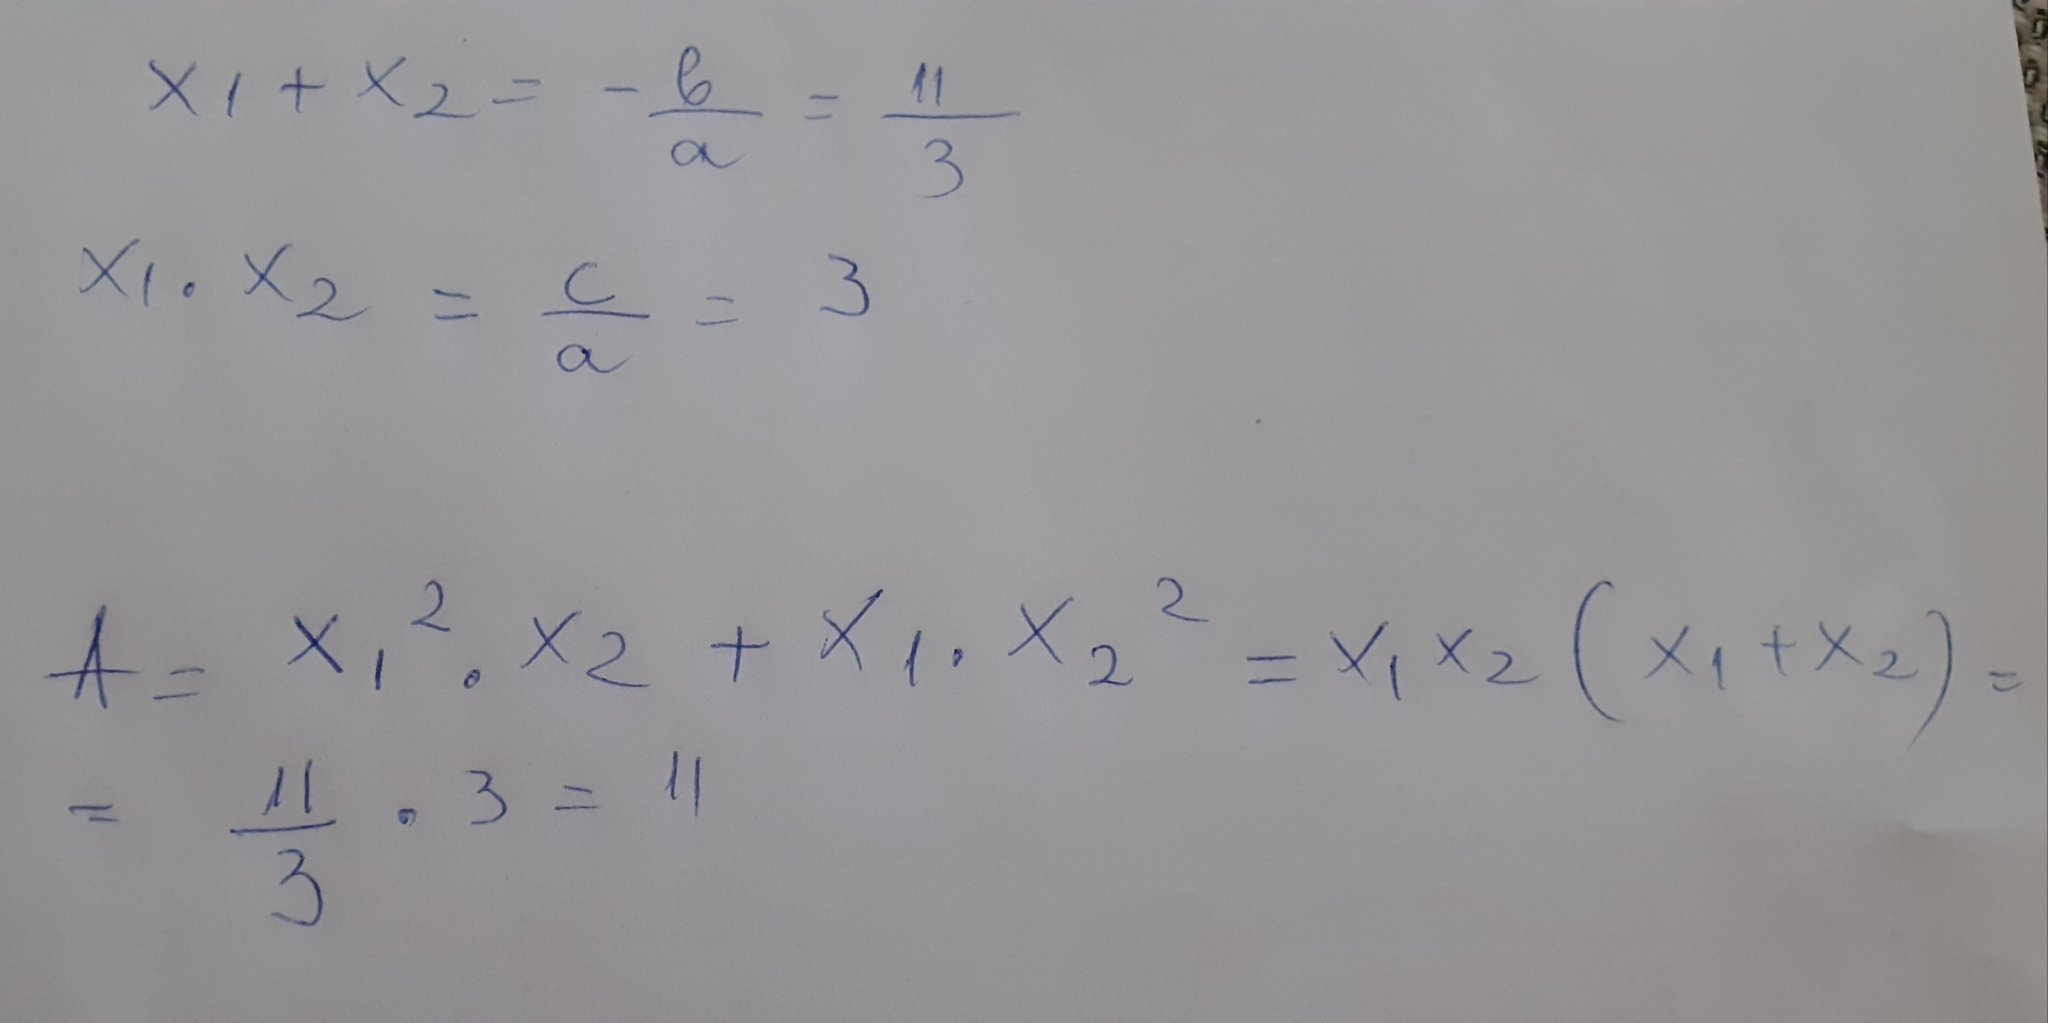 x₁ + x₂ = - b/a = 11/3
x₁ · x₂ = c/a = 3
A = x₁² · x₂ + x₁ · x₂² = x₁ x₂ ( x₁ + x₂ ) =
= 11/3 · 3 = 11